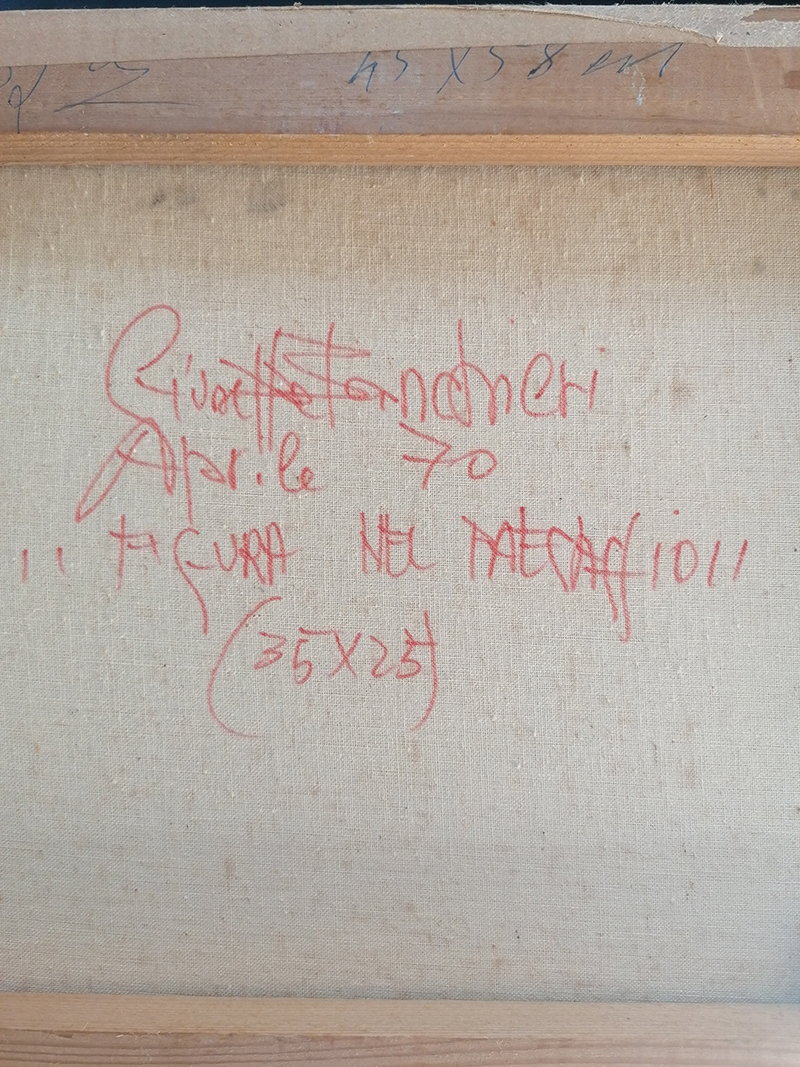 45 X 58 cm
Giuseppe Banchieri
Aprile 70
"FIGURA NEL PAESAGGIO"
(35X25)